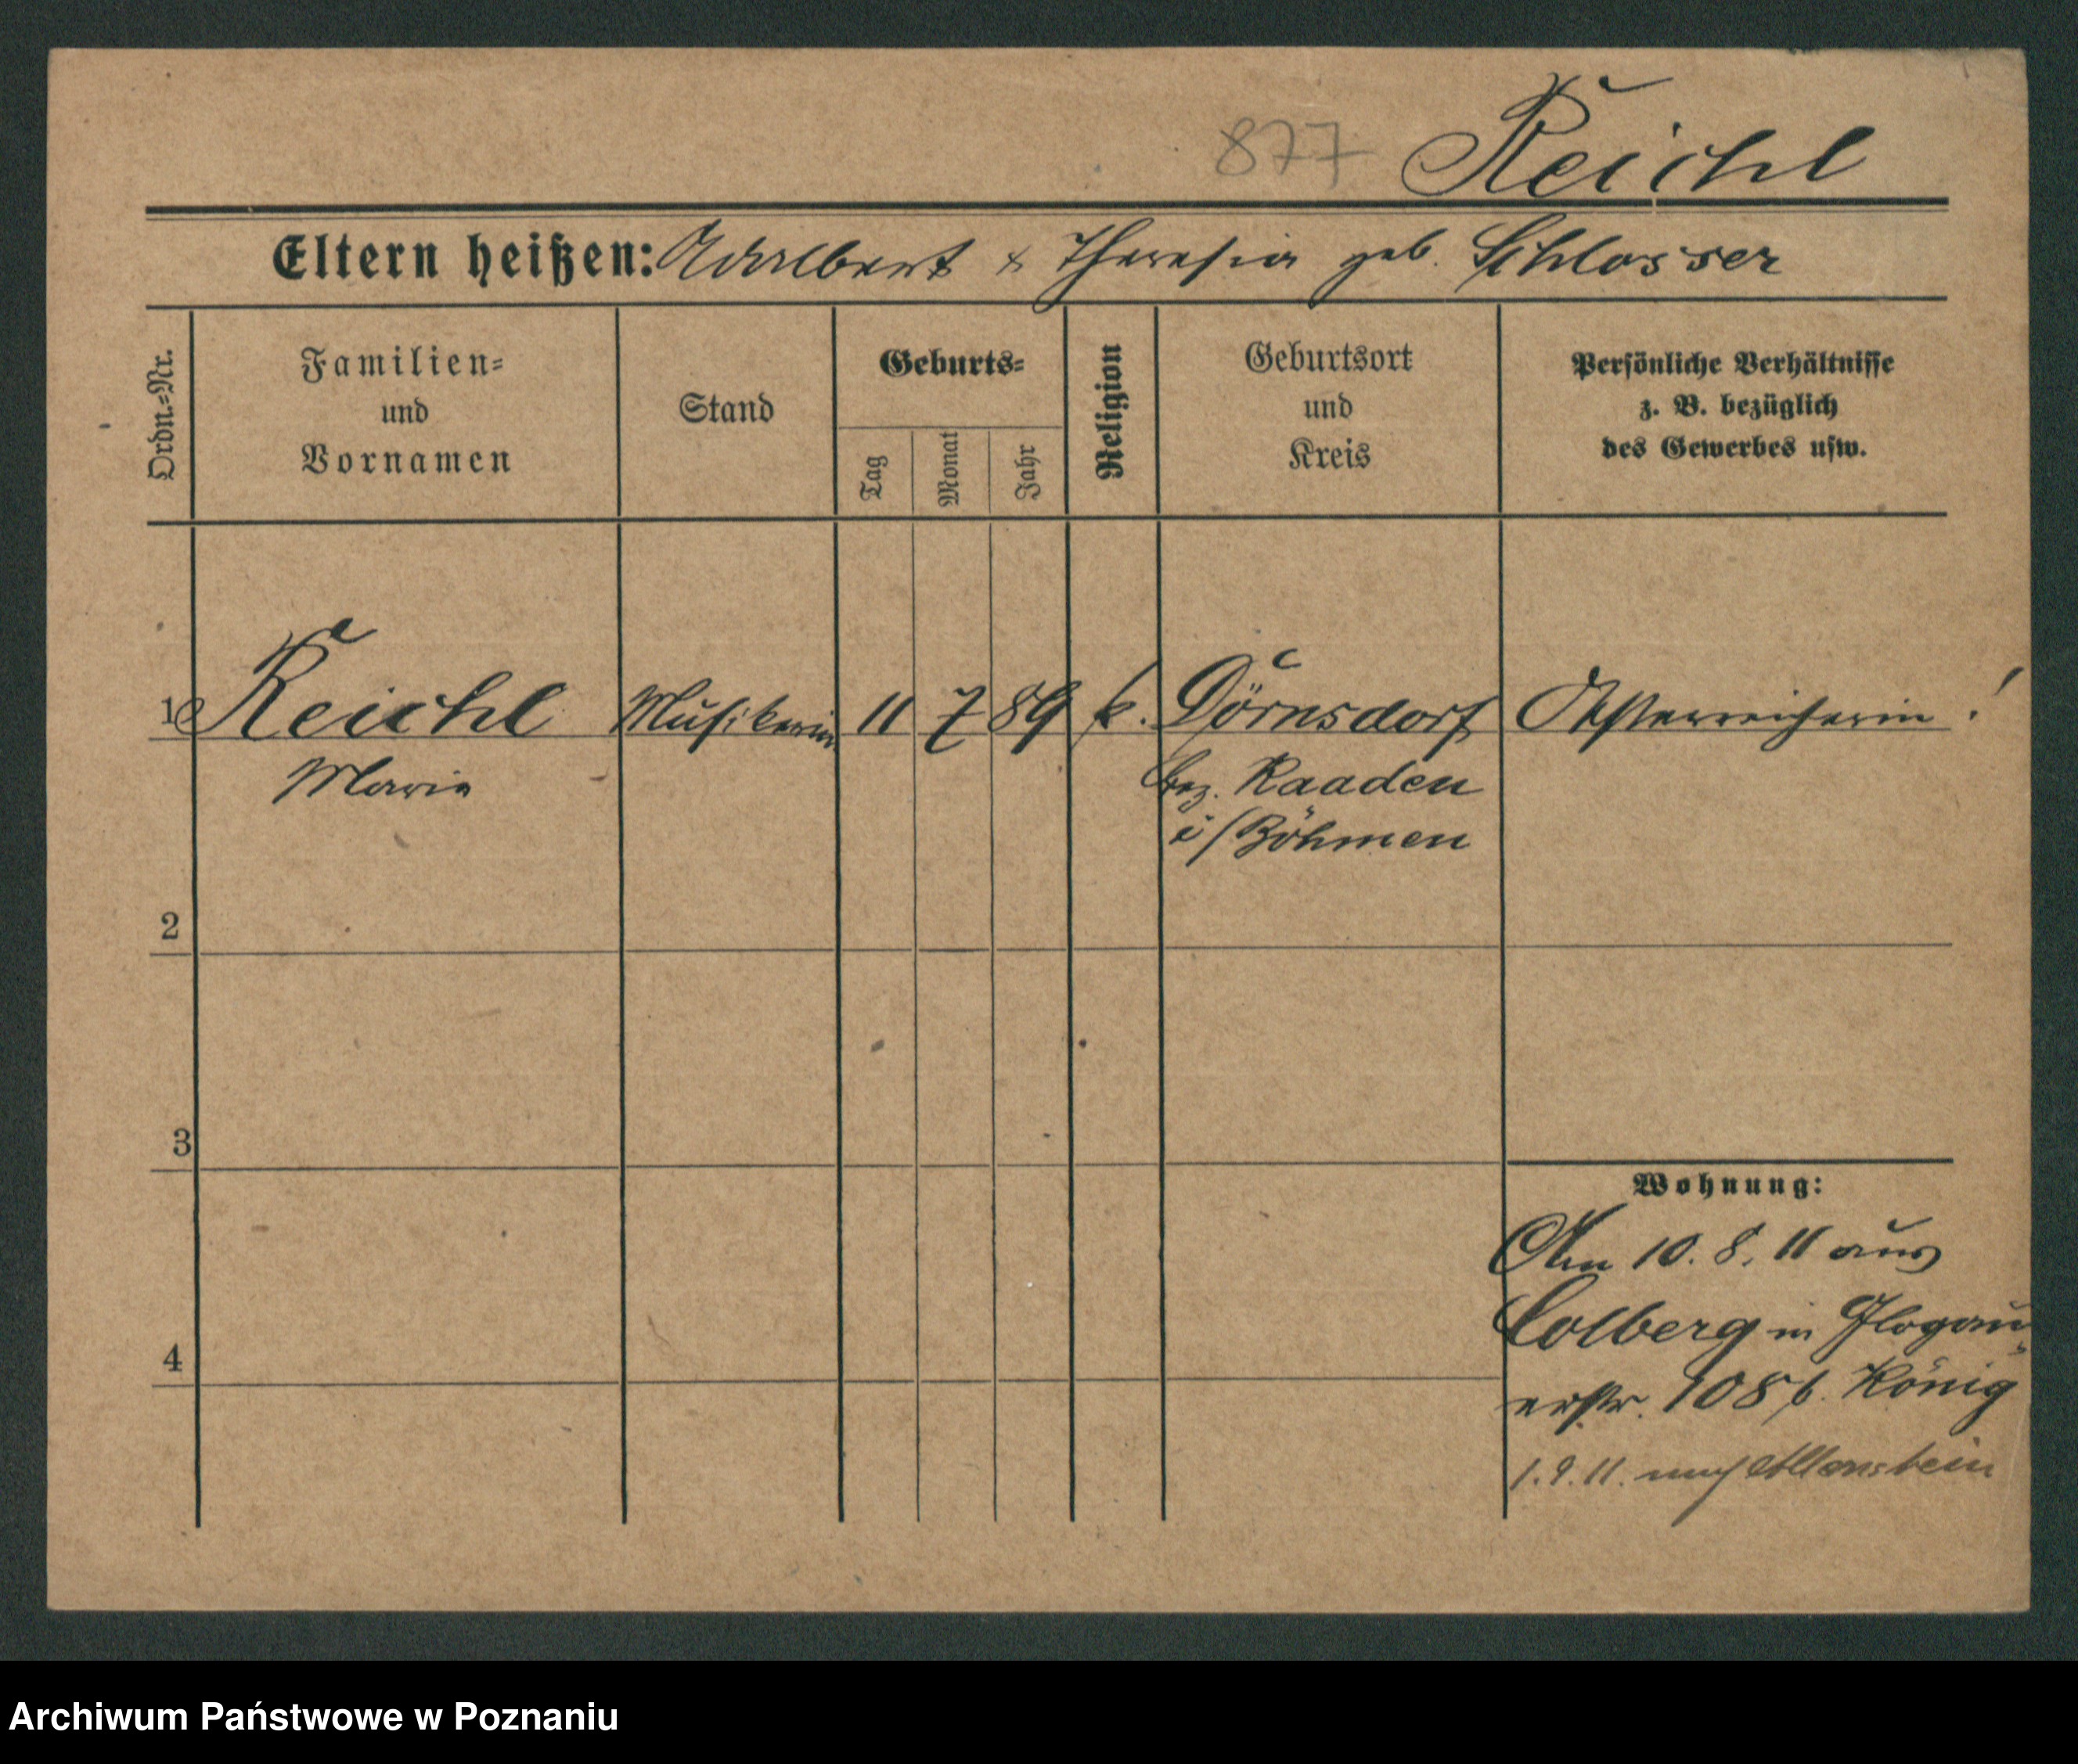 877 Reichl
Eltern heißen: Adalbert & Theresia geb. Schlosser
Ordn.-Nr.
Familien-
und
Vornamen
Stand
Geburts-
Tag
Monat
Jahr
Religion
Geburtsort
und
Kreis
Persönliche Verhältnisse
z. B. bezüglich
des Gewerbes usw.
1 Reichl Musikerin 11 7 89 k. Dörnsdorf Oesterreicherin!
Marie bez. Kaaden
i/Böhmen
2
3
Wohnung:
Am 10. 8. 11 aus
Colberg in Glogau-
4
erstr. 108 b. König
1. 9. 11. nach Allenstein
Archiwum Państwowe w Poznaniu